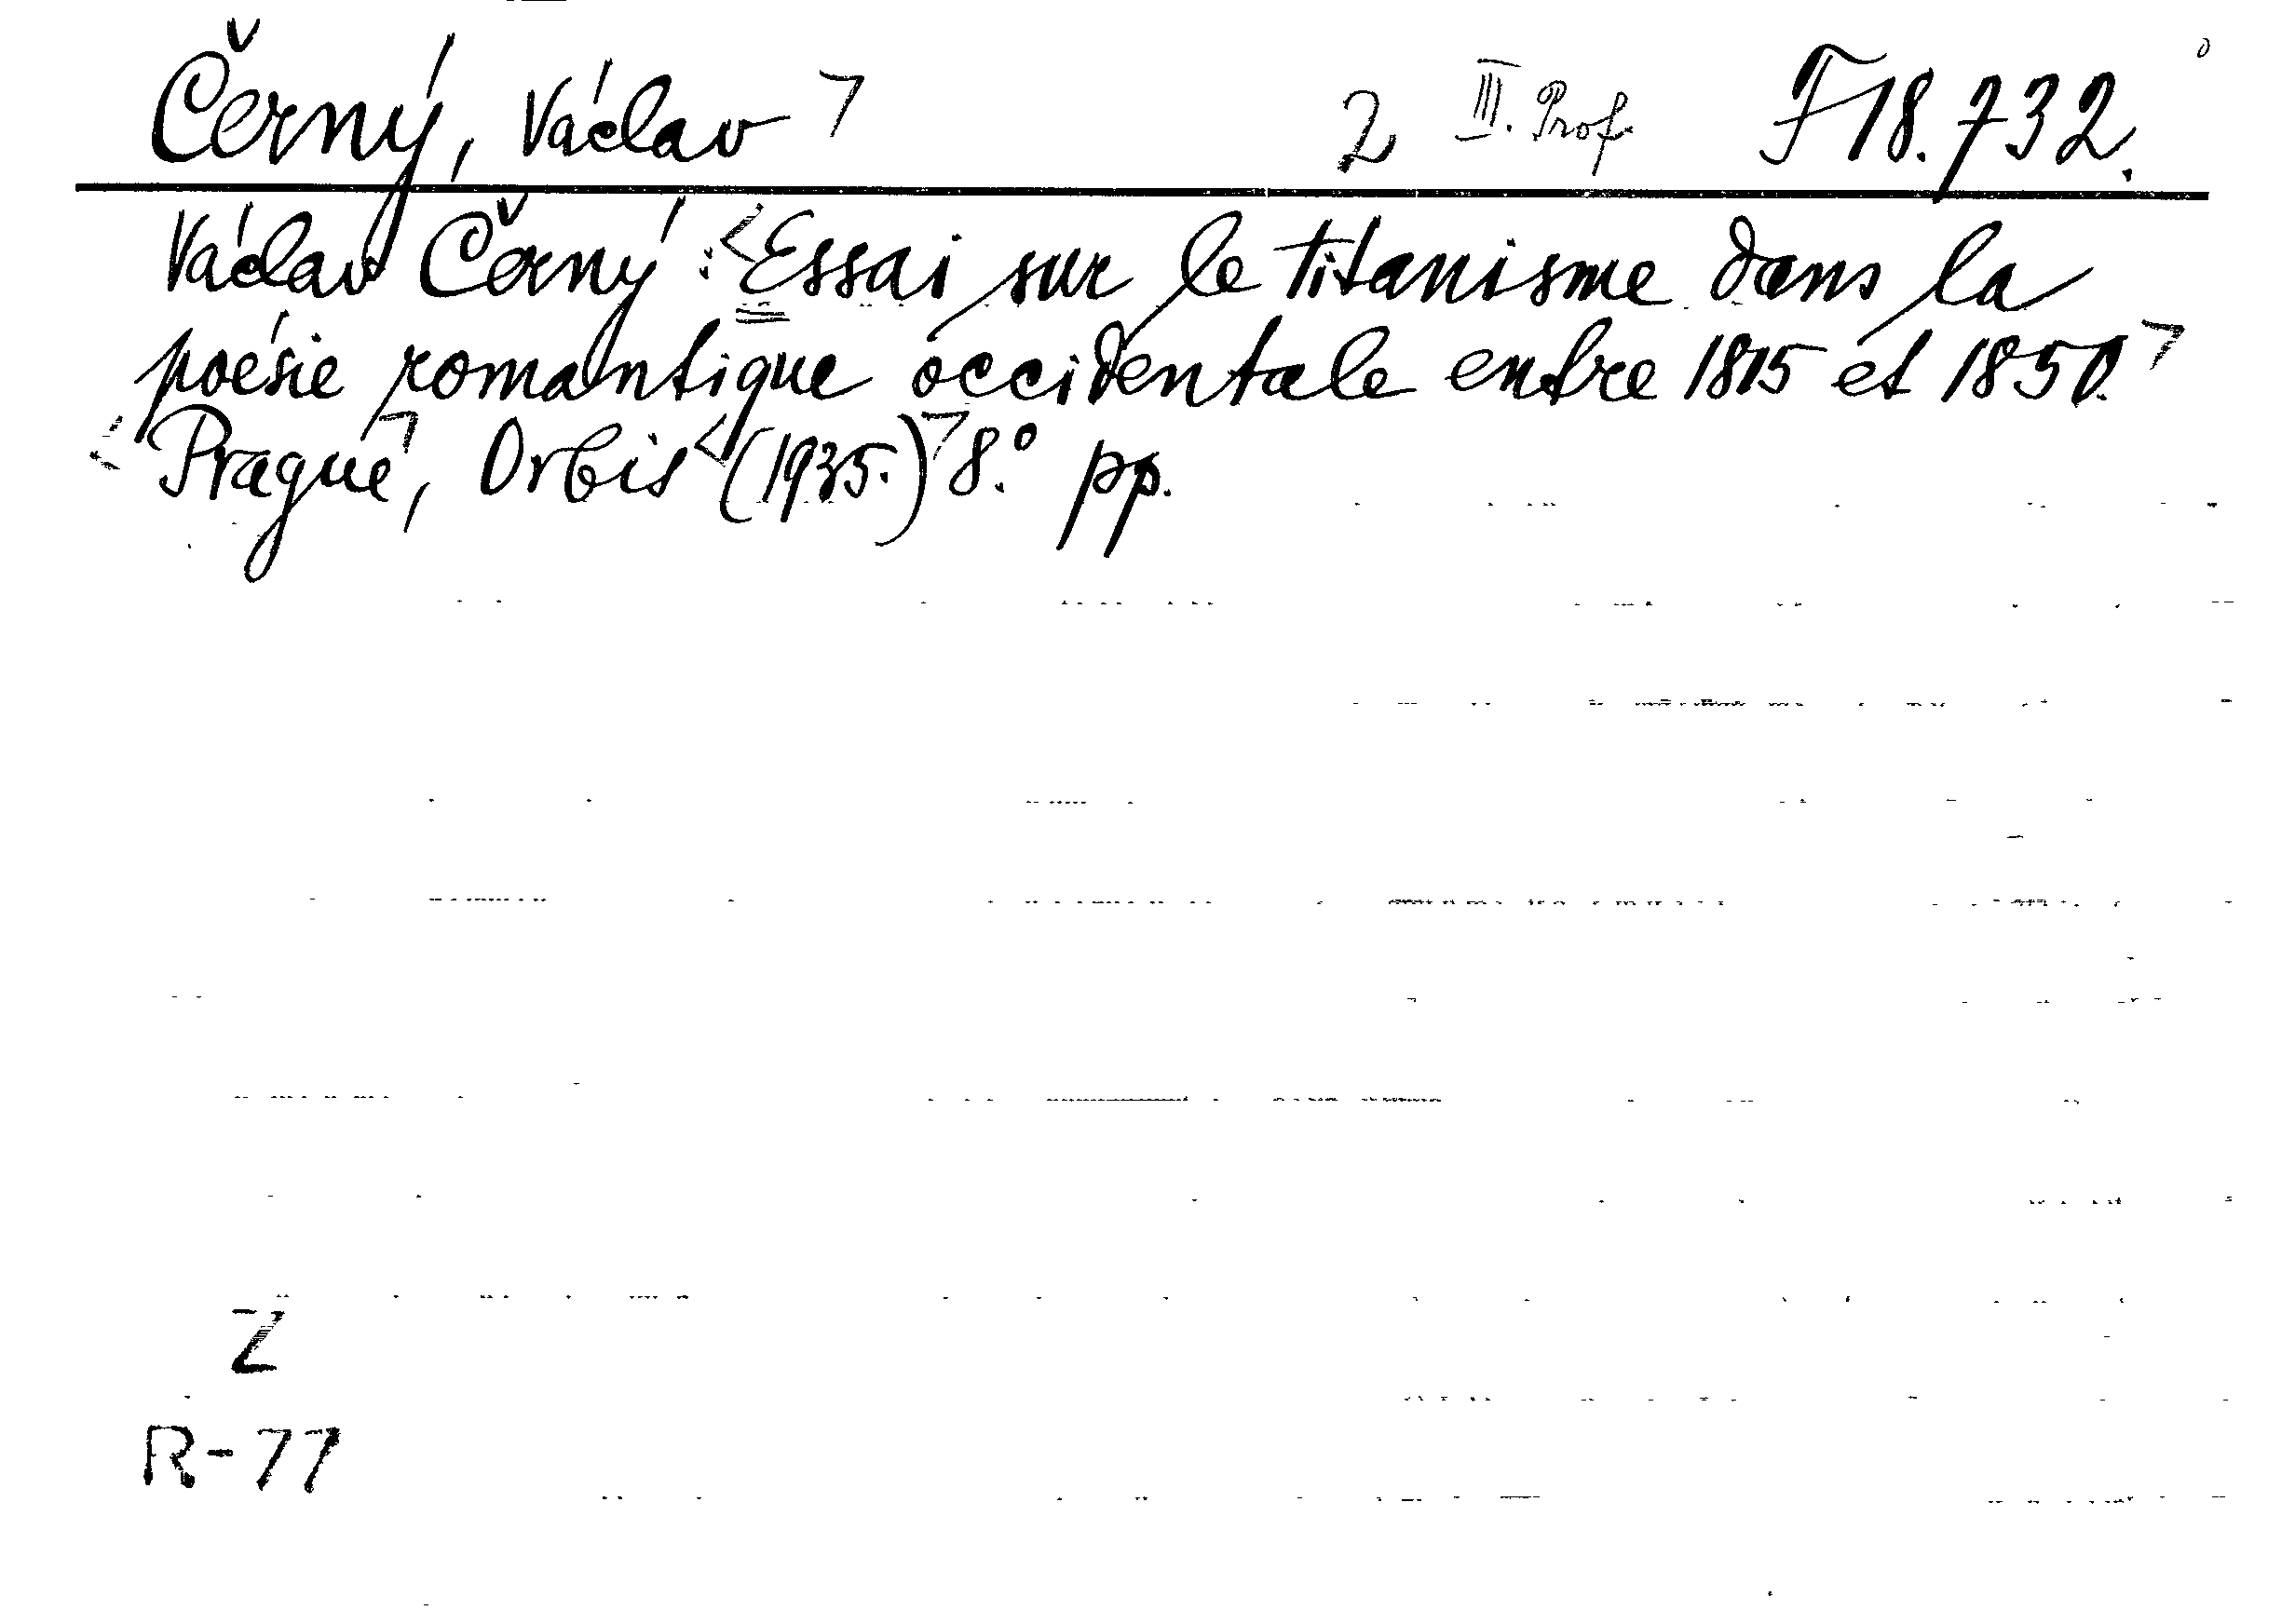 Černý, Václav ⁊ 2 III. Prof. F 18.732.
Václav Černý : <Essai sur le titanisme dans la
poésie romantique occidentale entre 1815 et 1850.>
Prague, Orbis (1935.) 8.° pp.
Z
R-77